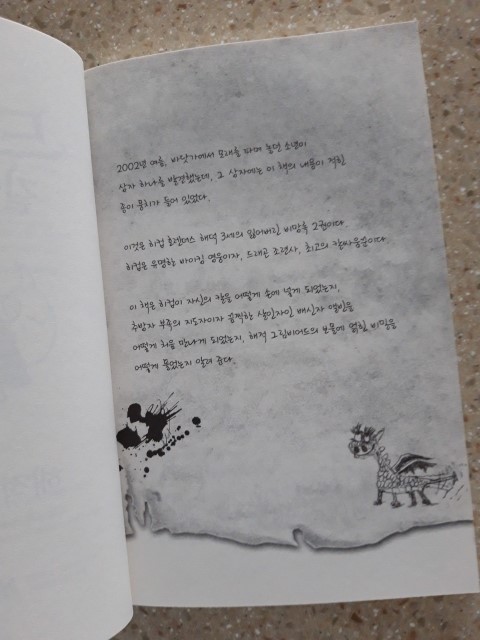 2002년 여름, 바닷가에서 모래를 파며 놀던 소년이
상자 하나를 발견했는데, 그 상자에는 이 책의 내용이 적힌
종이 뭉치가 들어 있었다.
이것은 히컵 호렌더스 해덕 3세의 잃어버린 비망록 2권이다.
히컵은 유명한 바이킹 영웅이자, 드래곤 조련사, 최고의 칼싸움꾼이다.
이 책은 히컵이 자신의 칼을 어떻게 손에 넣게 되었는지,
추방자 부족의 지도자이자 끔찍한 살인자인 배신자 앨빈을
어떻게 처음 만나게 되었는지, 해적 그림비어드의 보물에 얽힌 비밀을
어떻게 풀었는지 알려 준다.